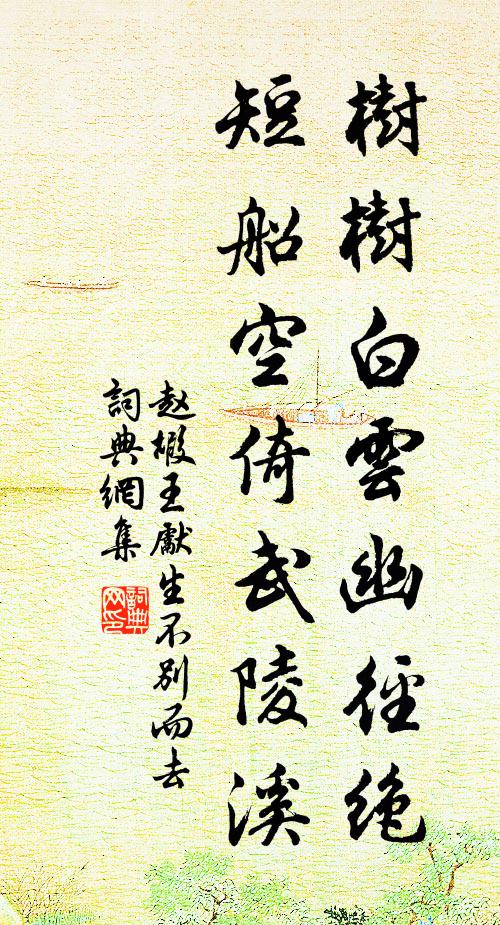 樹樹白雲幽徑絶
短船空倚武陵溪
赵嘏王獻生不別而去
詞典網集
詞典
网印